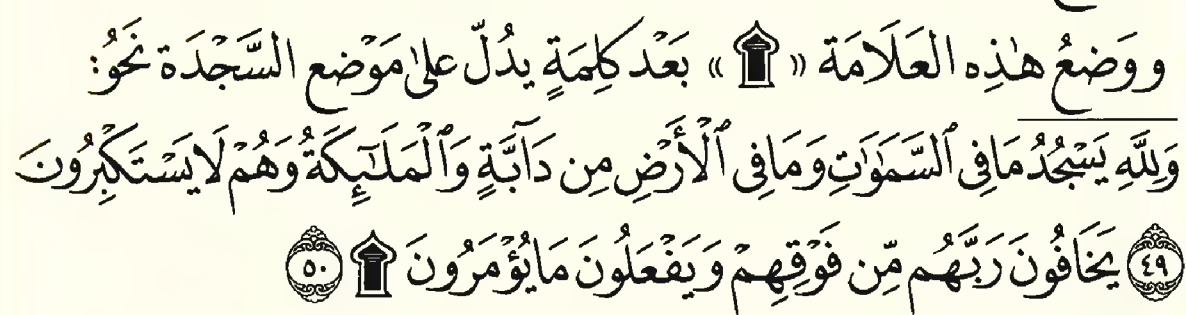 ووَضعُ هٰذِه العَلَامَة « ۩ » بَعْد كَلِمَةٍ يدُلّ علىٰ مَوْضع السَّجْدَة نَحْوُ:
وَلِلَّهِ يَسْجُدُ مَا فِي ٱلسَّمَٰوَٰتِ وَمَا فِي ٱلْأَرْضِ مِن دَآبَّةٍ وَٱلْمَلَـٰٓئِكَةُ وَهُمْ لَا يَسْتَكْبِرُونَ
﴿٤٩﴾ يَخَافُونَ رَبَّهُم مِّن فَوْقِهِمْ وَيَفْعَلُونَ مَا يُؤْمَرُونَ ۩ ﴿٥٠﴾